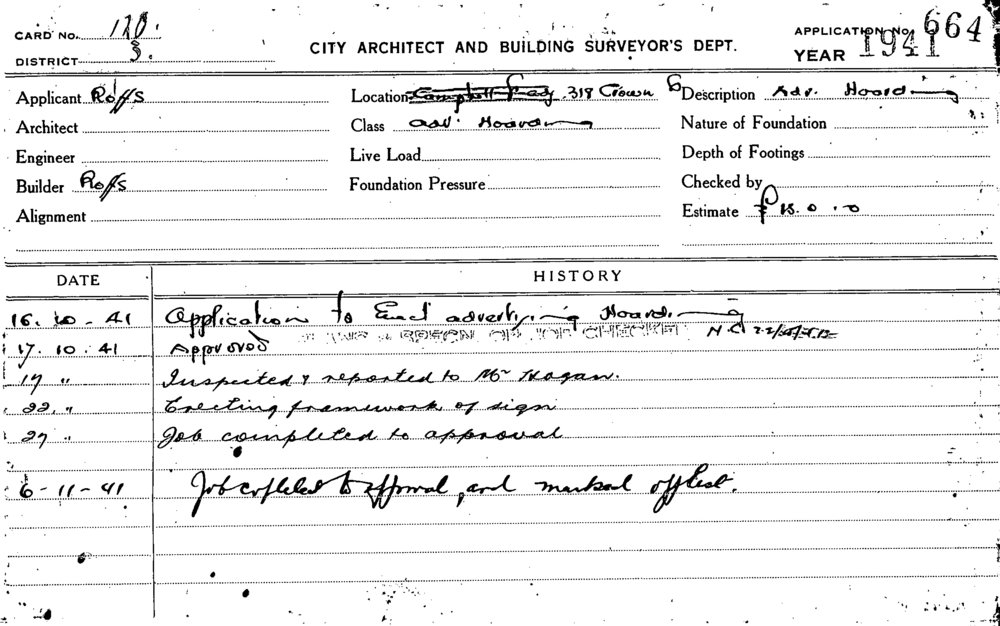 CARD No. 120.
APPLICATION No. 664
DISTRICT 3.
CITY ARCHITECT AND BUILDING SURVEYOR'S DEPT.
YEAR 1941
Applicant Roffs Location 318 Crown St Description Adv. Hoarding
Architect Class adv. Hoarding Nature of Foundation
Engineer Live Load Depth of Footings
Builder Roffs Foundation Pressure Checked by
Alignment Estimate £
DATE HISTORY
16. 10 - 41 Application to Erect advertising Hoarding
17. 10. 41 Approved
17 " Inspected & reported to Mr Hogan.
22. " Erecting framework of sign
27 " Job completed to approval
6-11-41 Job completed to approval, and marked off list.